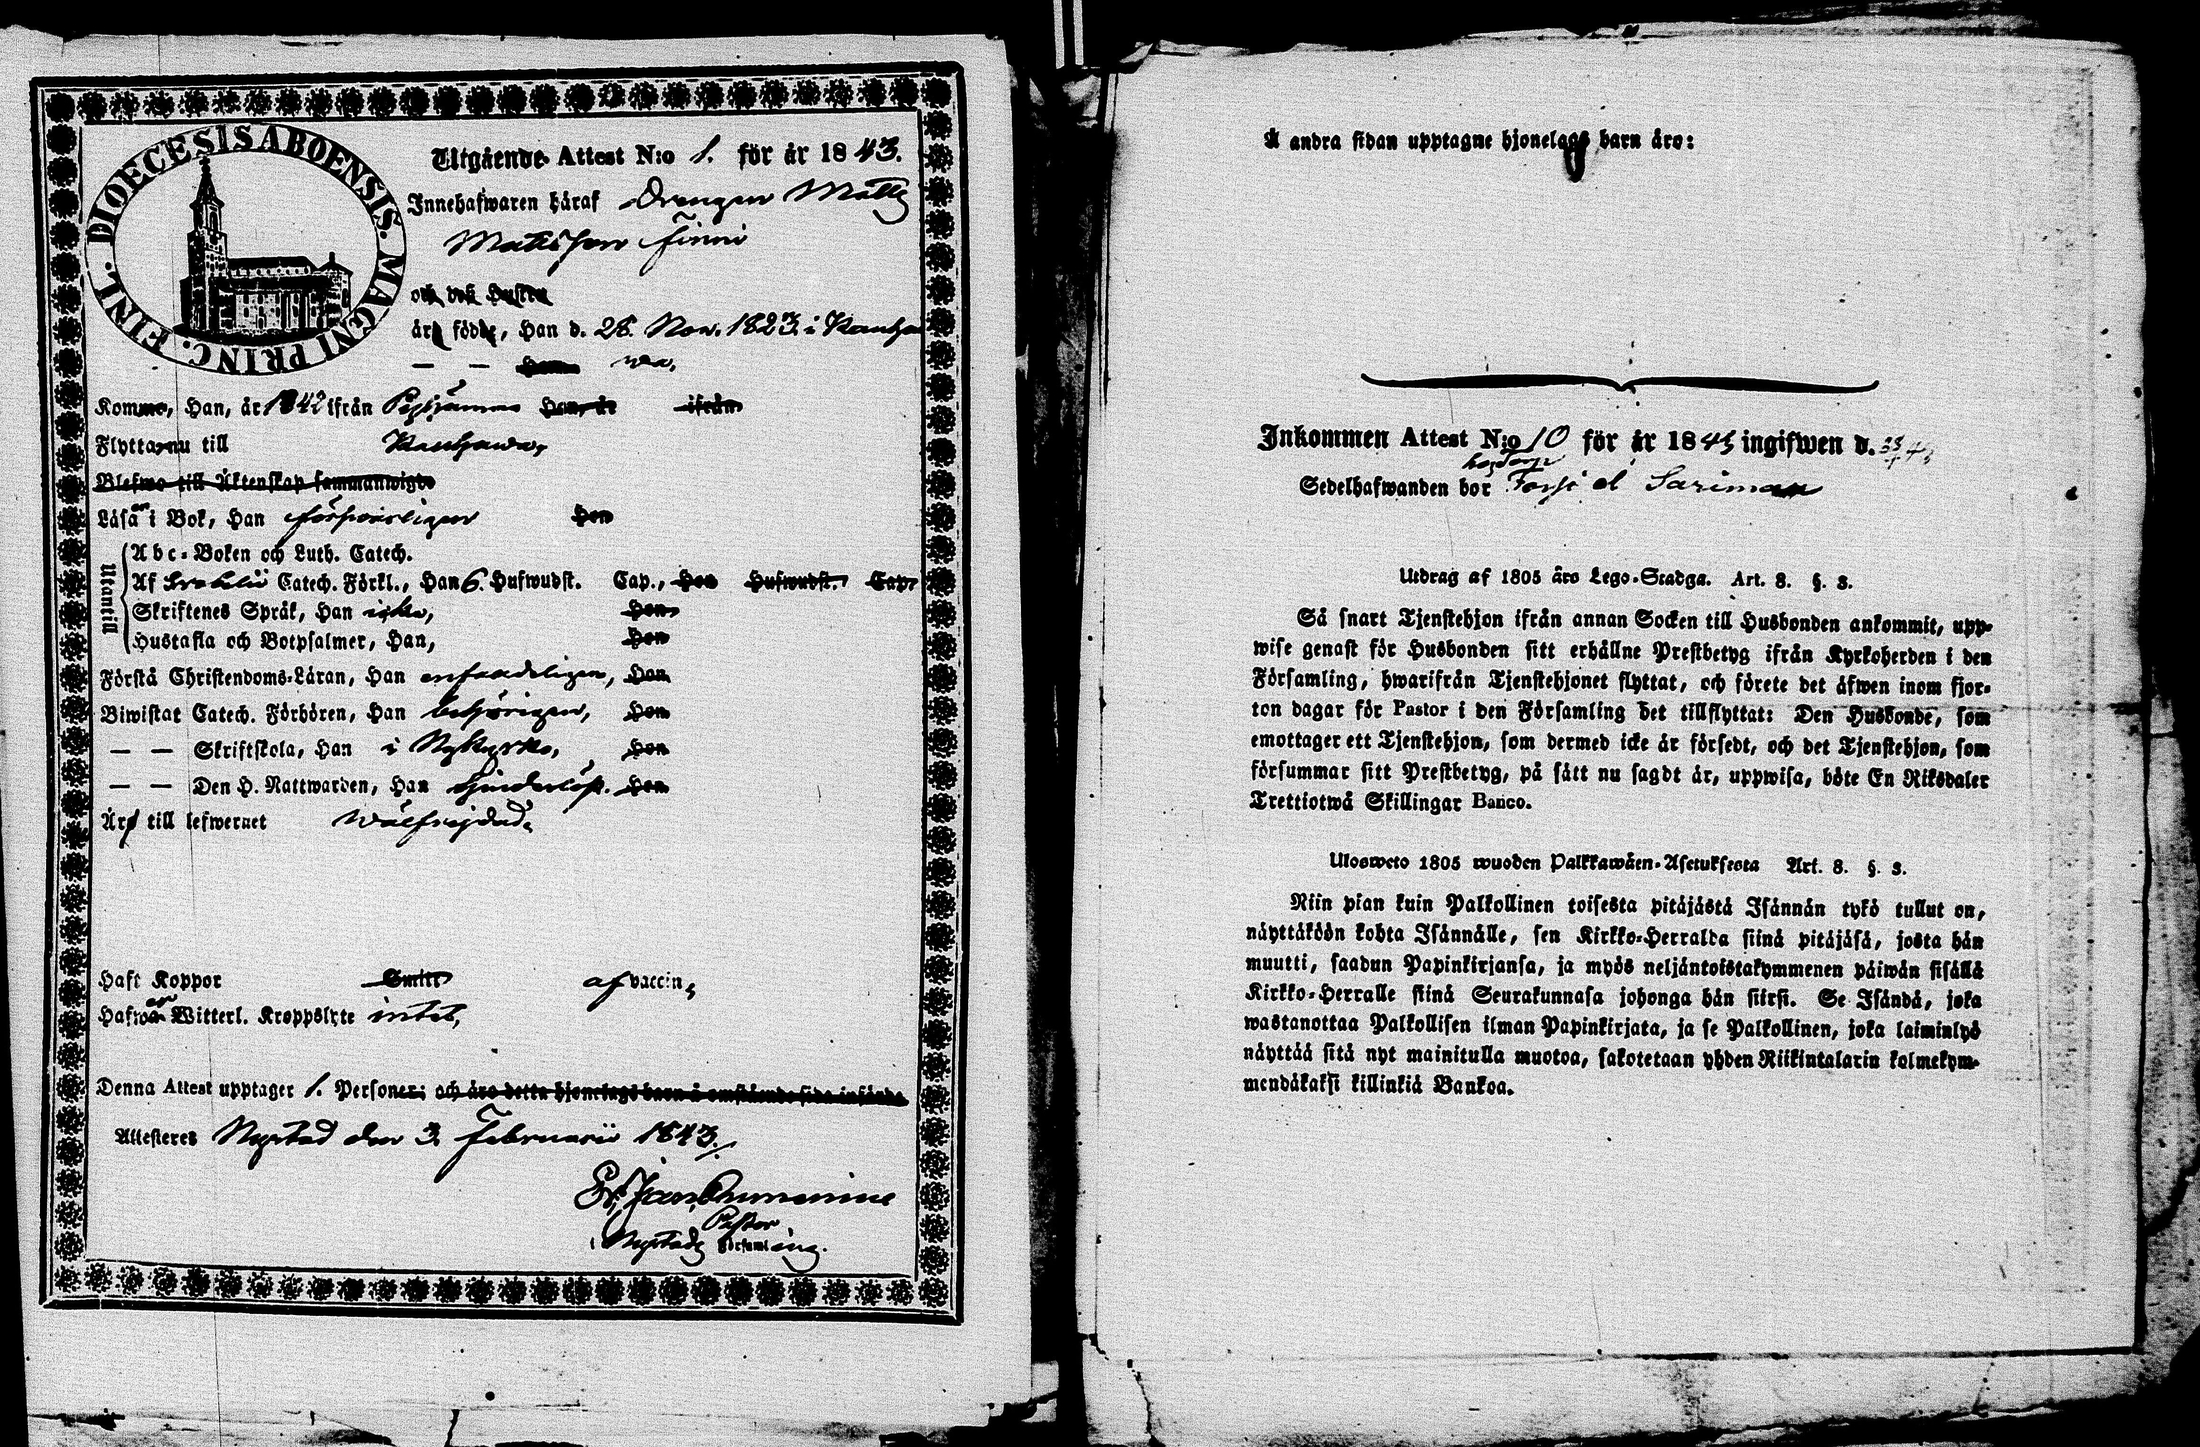 DIOECESIS ABOENSIS. MAGNI PRINC. FINL.
Utgående Attest N:o 1. för år 1843.
Innehafwaren häraf Drengen Matts
Mattsson Finni
och dess Hustru
äro födde, Han d. 28. Nov. 1823. i Kauha-
— — Hon wa,
Komne, Han, år 1842 ifrån Hon, år ifrån
Flytta nu till Kauhawa,
Blefwo till Äktenskap sammanwigde
Läsa i Bok, Han förswarligen Hon
Utantill
Abc-Boken och Luth. Catech.
Af Catech. Förkl., Han 6. Hufwudst. Cap., Hon Hufwudst. Cap.
Skriftenes Språk, Han icke, Hon
Hustafla och Botpsalmer, Han, Hon
Förstå Christendoms-Läran, Han enfaldeligen, Hon
Biwistat Catech. Förhören, Han behörigen, Hon
— — Skriftskola, Han i Nykyrko, Hon
— — Den H. Nattwarden, Han Hon
Äro till lefwernet wälfrejdad.
Haft Koppor Smitt af vaccin,
Hafwa Witterl. Kroppslyte intet,
Denna Attest upptager 1. Personer; och äro detta hjonelags barn å omstående sida införde.
Attesteres Nystad den 3. Februarii 1843.
Pastor
i Nystads Församling.
Å andra sidan upptagne hjonelags barn äro:
Inkommen Attest N:o 10 för år 1843 ingifwen d.
Sedelhafwanden bor
Utdrag af 1805 års Lego-Stadga. Art. 8. §. 3.
Så snart Tjenstehjon ifrån annan Socken till Husbonden ankommit, upp-
wise genast för Husbonden sitt erhållne Prestbetyg ifrån Kyrkoherden i den
Församling, hwarifrån Tjenstehjonet flyttat, och förete det äfwen inom fjor-
ton dagar för Pastor i den Församling det tillflyttat: Den Husbonde, som
emottager ett Tjenstehjon, som dermed icke är försedt, och det Tjenstehjon, som
försummar sitt Prestbetyg, på sätt nu sagdt är, uppwisa, böte En Riksdaler
Trettiotwå Skillingar Banco.
Ulosweto 1805 wuoden Palkkawäen-Asetuksesta Art. 8. §. 3.
Niin pian kuin Palkollinen toisesta pitäjästä Isännän tykö tullut on,
näyttäköön kohta Isännälle, sen Kirkko-Herralda siinä pitäjäsä, josta hän
muutti, saadun Papinkirjansa, ja myös neljäntoistakymmenen päiwän sisällä
Kirkko-Herralle siinä Seurakunnasa johonga hän siirsi. Se Isändä, joka
wastanottaa Palkollisen ilman Papinkirjata, ja se Palkollinen, joka laiminlyö
näyttää sitä nyt mainitulla muotoa, sakotetaan yhden Riikintalarin kolmekym-
mendäkaksi killinkiä Bankoa.